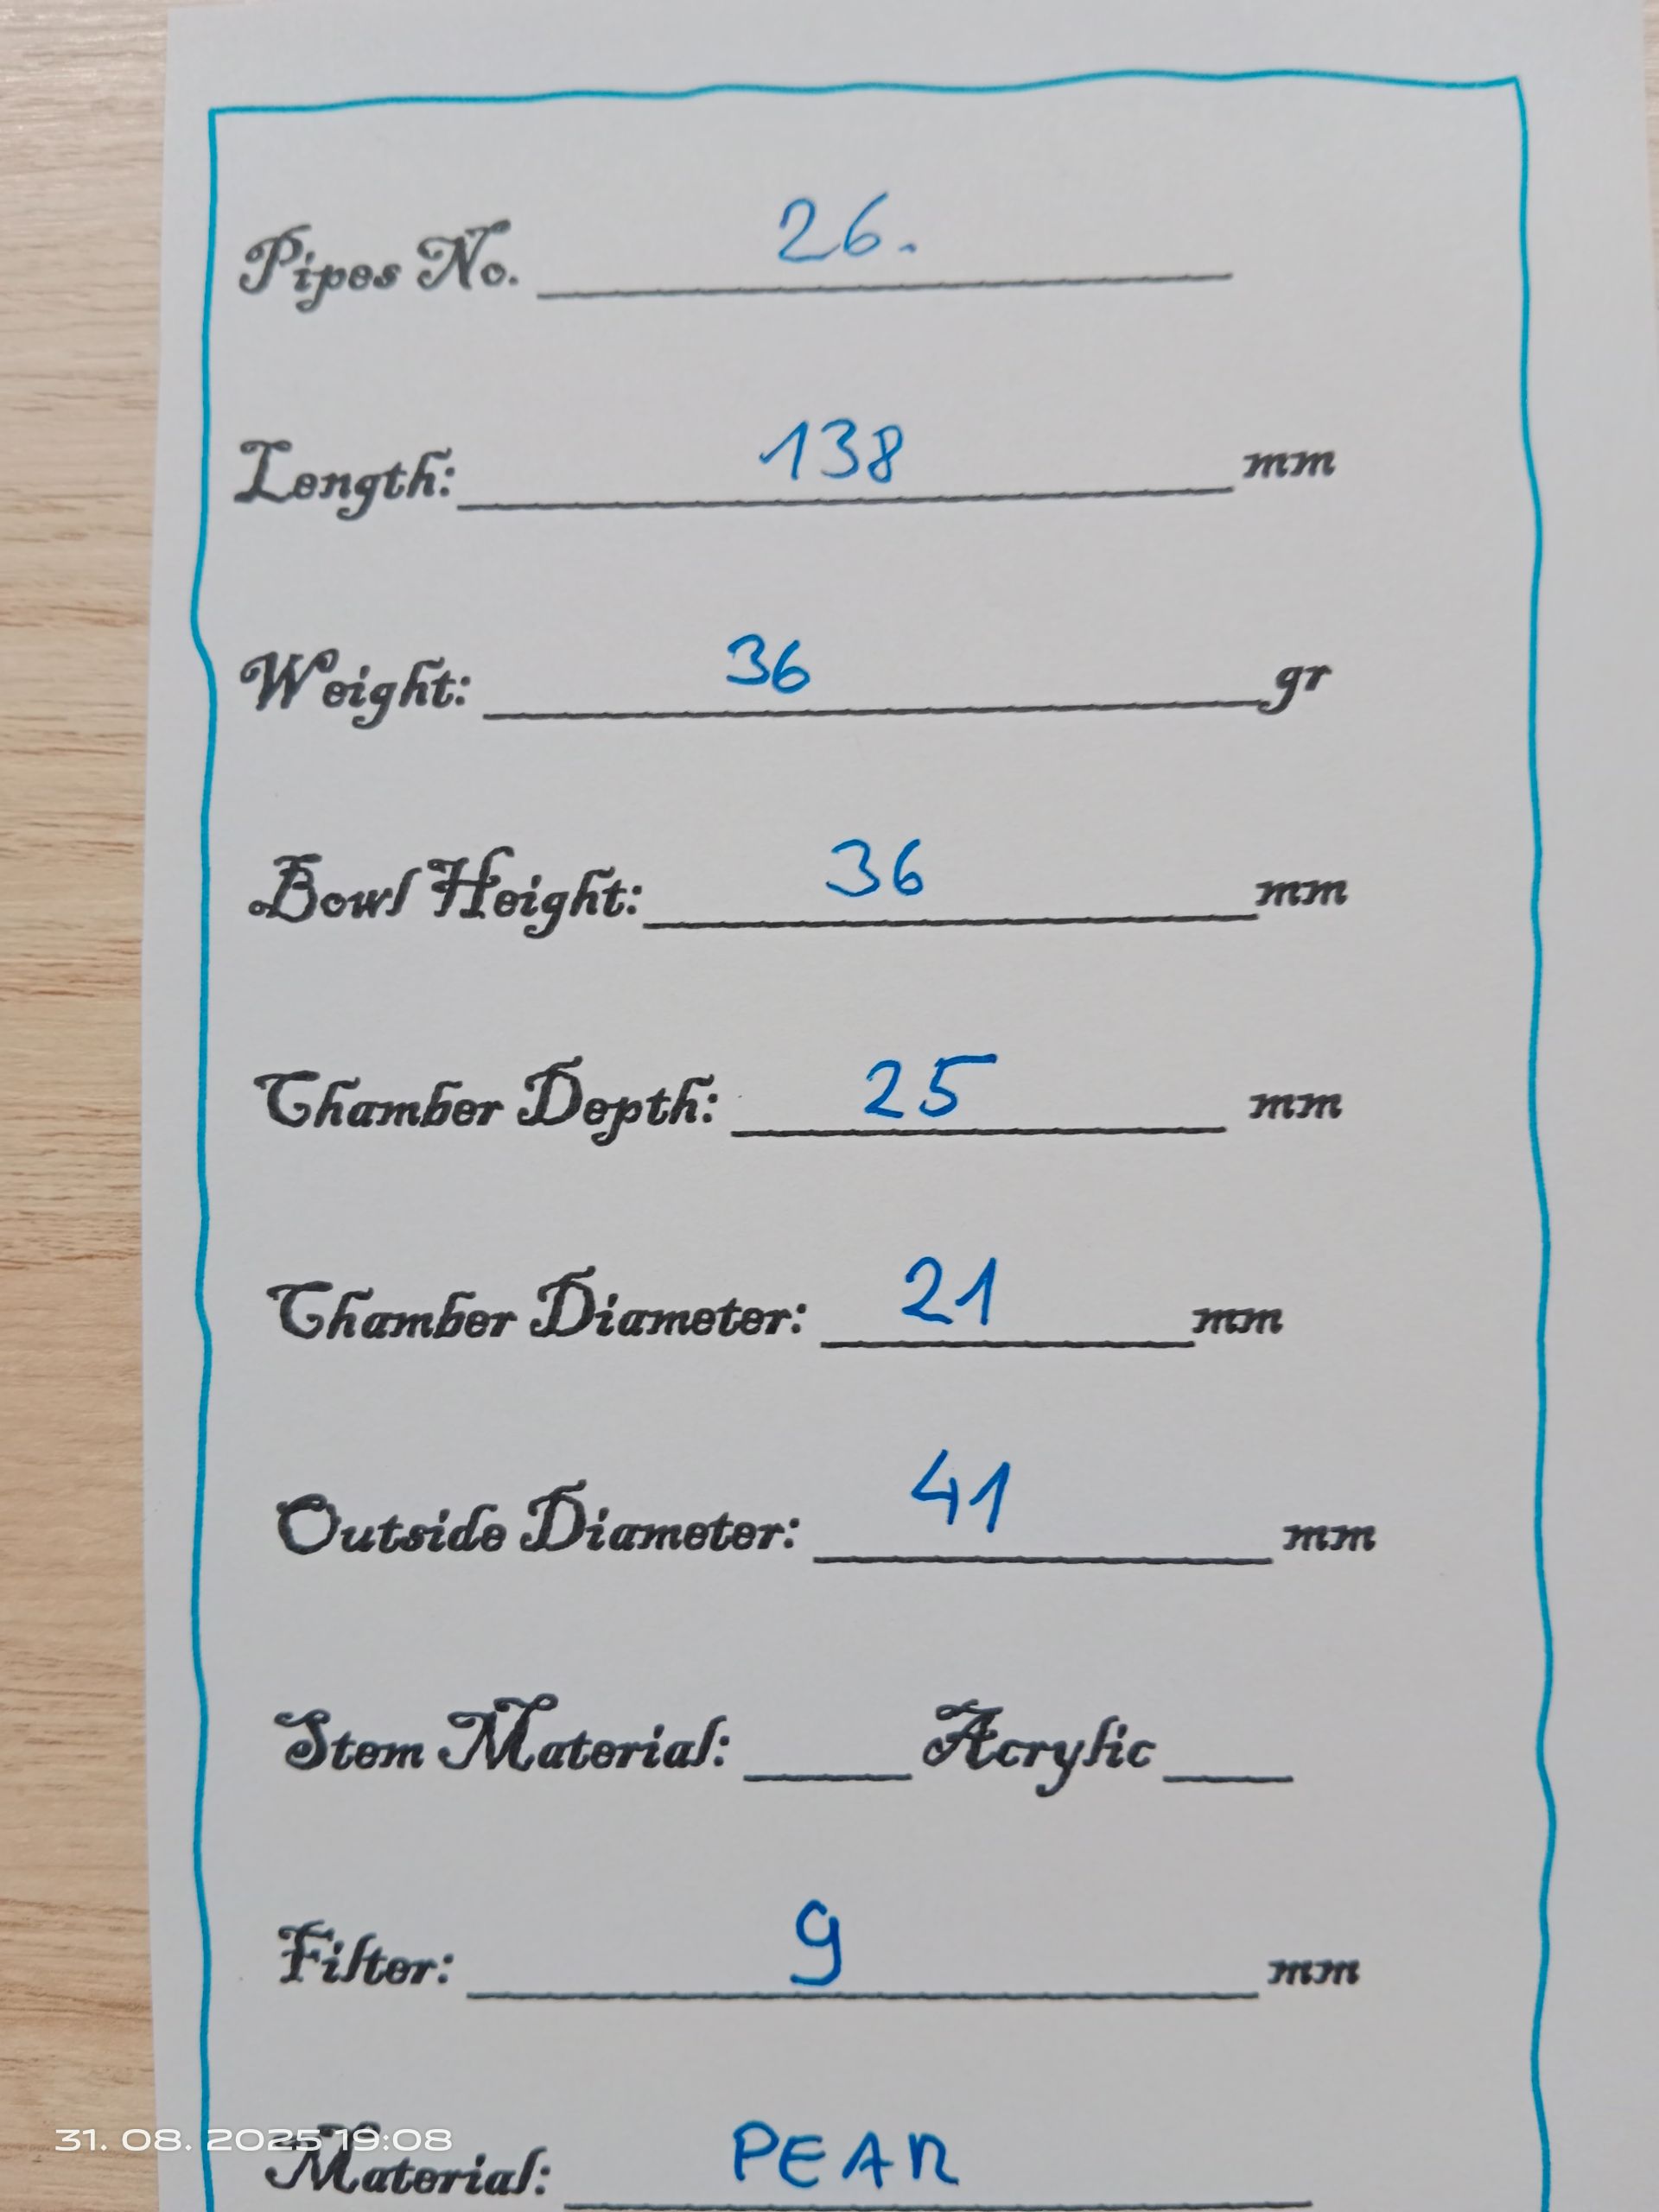 Pipes No. 26.
Length: 138 mm
Weight: 36 gr
Bowl Height: 36 mm
Chamber Depth: 25 mm
Chamber Diameter: 21 mm
Outside Diameter: 41 mm
Stem Material: ____ Acrylic ____
Filter: 9 mm
Material: PEAR
31. 08. 2025 19:08